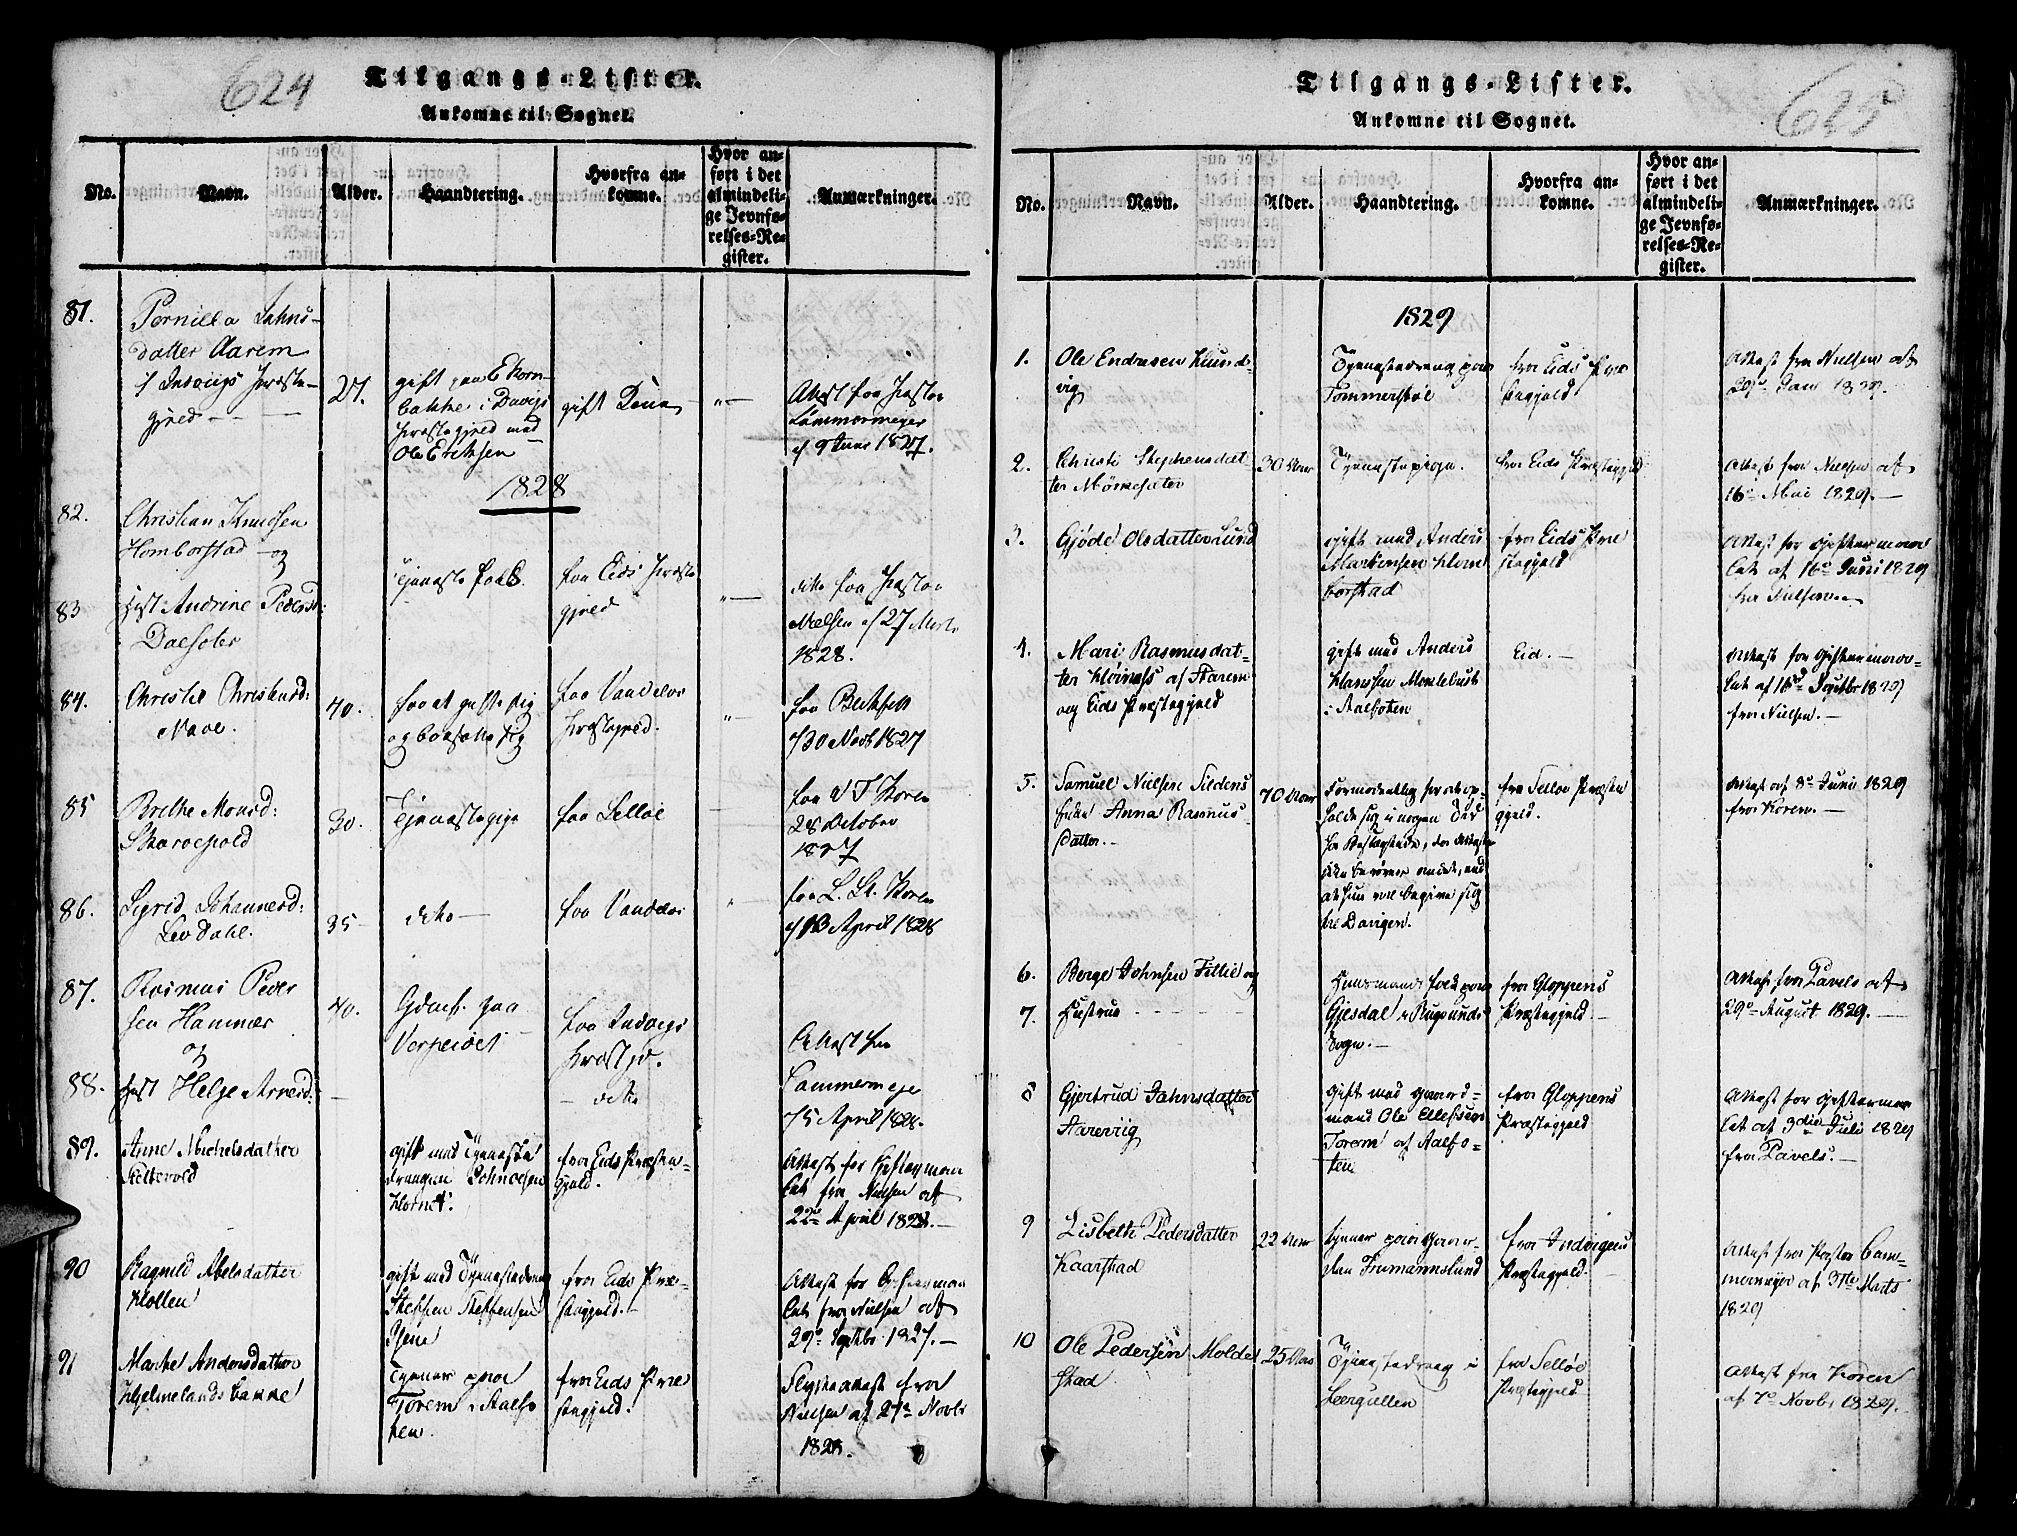 624
Tilgangs-Lister.
Ankomne til Sognet.
No.
Navn.
Alder.
Haandtering.
Hvorfra an-
komne.
Hvor an-
ført i det
almindeli-
ge Jevnfø-
relses-Re-
gister.
Anmærkninger.
81.
Pernilla Jahns-
datter Aarem
gjeld
27.
gift paa
bakke i Davigs
Præstegjeld med
Ole Erichsen
gift
Attest fra Pastor
9 Juni 1827.
1828
82.
Christian Knudsen
Homborstad og
83
Hust Andrine Peders:
Dalsæter
Tjeneste folk.
fra Eids Præste
gjeld
ditto fra Pastor
Nielsen af 27 Marts
1828.
84.
Christie Christensd:
Nave.
40.
for at gifte sig
og bosætte sig
fra Vandelvs
Præstegjeld.
fra
30 Novb 1827
85
Brethe Monsd:
30.
Tjenestepige
fra Selløe
fra Koren
28 October
1827
86.
Sigrid Johannesd:
Levdahl.
35
ditto
fra Vandelvs
fra Koren
13 April 1828
87.
Rasmus Peder
sen Hammer
og
40.
paa
Verpeidet
fra Indvigs
Præstgj.
Attest fra
88.
Hust Helge Arnesd:
ditto
15 April 1828.
89.
Anne Michelsdatter
gift med Tjeneste
drengen
Hornet.
fra Eids Præste-
gjeld.
Attest for Giftermaa
let fra Nielsen af
22de April 1828.
90
Ragnild Abelsdatter
Mollen
gift med Tjenestedreng
Steffen Steffensen
fra Eids Præ-
stegjeld.
Attest for Giftermaa
let fra Nielsen af
29de Septbr 1827.
91
Marthe Andersdatter
Hjelmelandsbakke
Tjener paa
Torem i Aalfo
ten.
fra Eids Præ
stegjeld.
Flytteattest fra
Nielsen af 27de Novbr
1828.
625
Tilgangs-Lister.
Ankomne til Sognet.
No.
Navn.
Alder.
Haandtering.
Hvorfra an-
komne.
Hvor an-
ført i det
almindeli-
ge Jevnfø-
relses-Re-
gister.
Anmærkninger.
1829
1.
Ole Endresen Hund-
vig
Tjenestedreng paa
Tommerstøl
fra Eids Præ
stegjeld
Attest fra Nielsen af
29de Jani 1829.
2.
Christi Stephensdat-
ter Mørkesæter
30 Aar
Tjenestepige.
fra Eids Præstegjeld
Attest fra Nielsen af
16de Mai 1829.
3.
Gjøde Olsdatter Lund
gift med Anders
Martensen Hom
borstad
fra Eids Præ
stegjeld
Attest for Giftermaa
let af 16de Juni 1829
fra Nielsen
4.
Mari Rasmusdat-
ter Høines af Starem
og Eids Præstegjeld
gift med Anders
Hanssen Myklebust
i Aalfoten
Eid.
Attest for Giftermaa-
let af 16de Septbr 1829
fra Nielsen.
5.
Samuel Nielsen Sildens
Enke Anna Rasmus
Datter.
70 Aar
Formodentlig for at op-
holde sig i nogen Tid
at hun vil begive sig
til Davigen.
fra Selløe Præste
gjeld.
Attest af 8de Juni 1829
fra Koren.
6.
Berge Johnsen Tillie og
7.
Hustrue
Huusmandsfolk paa
Gjesdal i Rugsunds
Sogn.
fra Gloppens
Præstegjeld
Attest fra Pavels af
29de August 1829.
8
Gjertrud Jahnsdatter
Aarevig
gift med Gaard-
mand Ole Ellefsen
Torem af Aalfo-
ten
fra Gloppens
Præstegjeld
Attest for Gifterma
let af 3die Juli 1829
fra Pavels.
9
Lisbeth Pedersdatter
Kaarstad
22 Aar
tjener paa Gaar-
den Frumannslund
fra Indvigens
Præstegjeld.
Attest fra Pastor Cam-
mermeyer af 31te Marts
1829
10
Ole Pedersen Molde
stad
25 Aar
Tjenestedreng i
Leergullen
fra Selløe
Præstegjeld
Attest fra Koren
af 7de Novbr 1829.